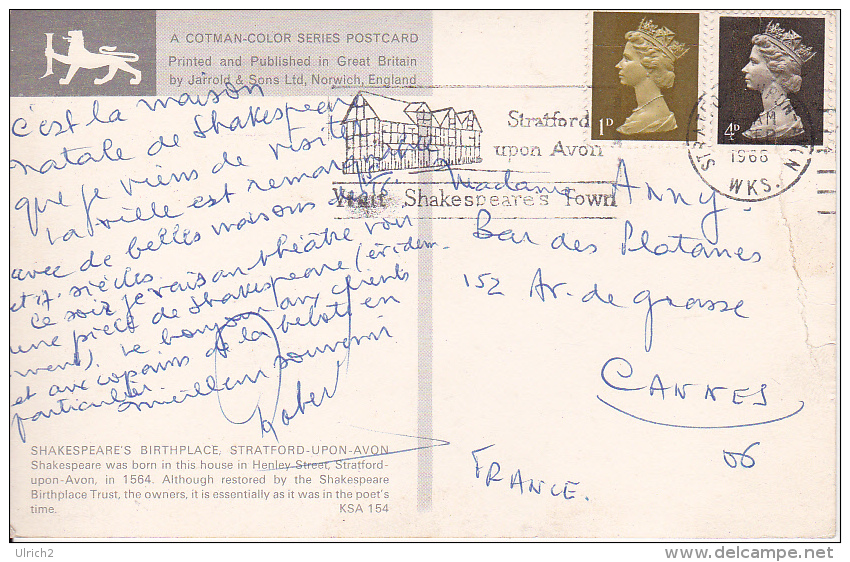 A COTMAN-COLOR SERIES POSTCARD
Printed and Published in Great Britain
by Jarrold & Sons Ltd, Norwich, England
c'est la maison
natale de Shakespeare
que je viens de visiter
La ville est remarquable
avec de belles maisons des 16
et 17. siècles.
Ce soir je vais au théâtre voir
une pièce de Shakespeare (évidem-
ment). Le bonjour aux clients
et aux copains de la belote en
particulier.
meilleur souvenir
Robert
SHAKESPEARE'S BIRTHPLACE, STRATFORD-UPON-AVON
Shakespeare was born in this house in Henley Street, Stratford-
upon-Avon, in 1564. Although restored by the Shakespeare
Birthplace Trust, the owners, it is essentially as it was in the poet's
time. KSA 154
1D
4D
Stratford
upon Avon
Visit Shakespeare's Town
AM
1968
WKS.
Madame Anny.
Bar des Platanes
152 Av. de grasse
CANNES
06
FRANCE.
Ulrich2
www.delcampe.net